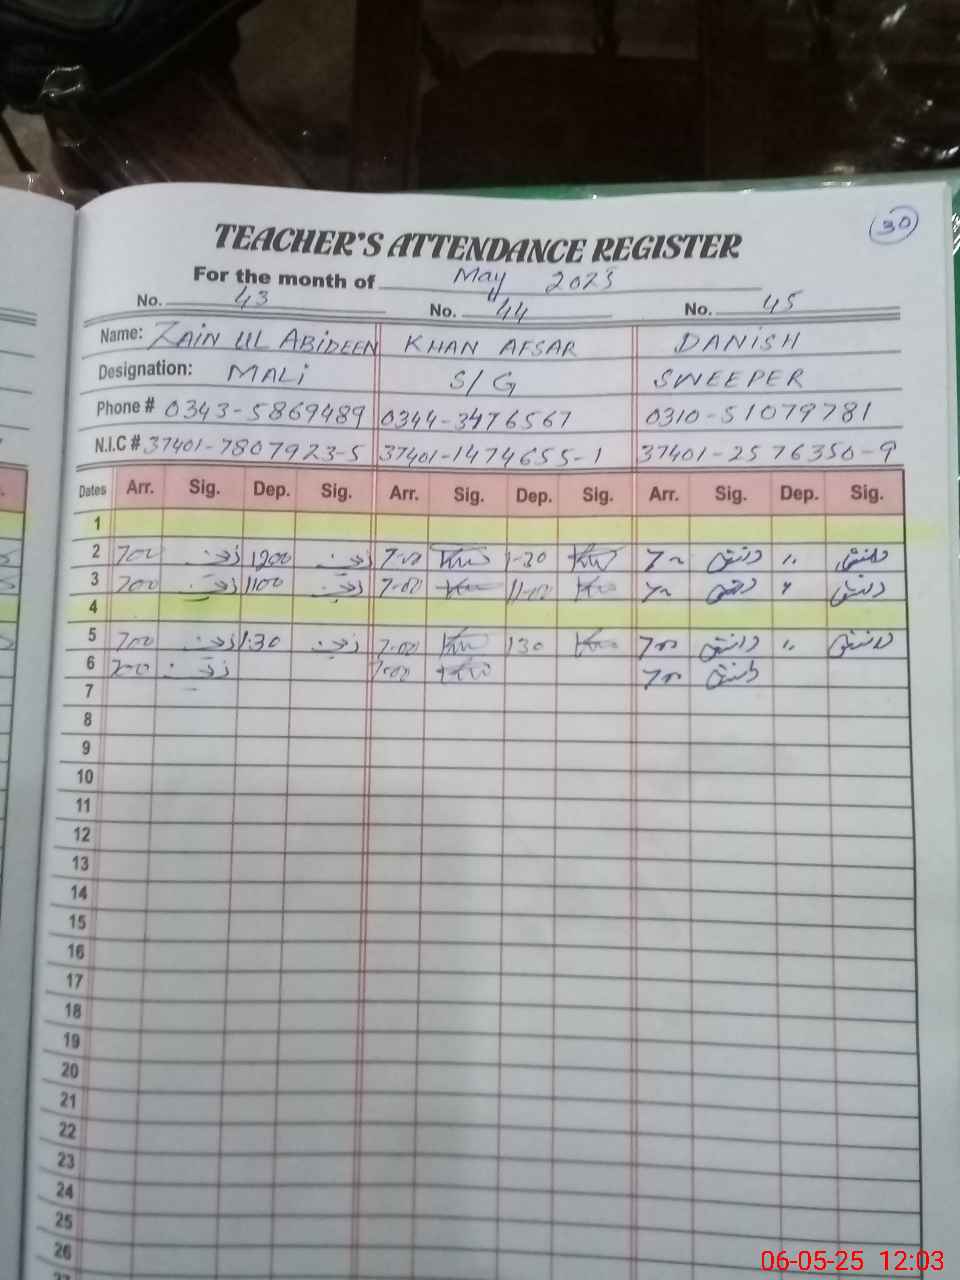 30
TEACHER'S ATTENDANCE REGISTER
For the month of May 2025
No. 43 No. 44 No. 45
Name: ZAIN UL ABIDEEN KHAN AFSAR DANISH
Designation: MALI S/G SWEEPER
Phone # 0343-5869489 0344-3476567 0310-51079781
N.I.C # 37401-7807923-5 37401-1474655-1 37401-2576350-9
Dates Arr. Sig. Dep. Sig. Arr. Sig. Dep. Sig. Arr. Sig. Dep. Sig.
1
2 700 1200 7-00 1-30 دانش دانش
3 700 1100 7-00 11-00 دانش دانش
4
5 700 1:30 7-00 130 700 دانش دانش
6 700 7-00 700 دانش
7
8
9
10
11
12
13
14
15
16
17
18
19
20
21
22
23
24
25
26
27
06-05-25 12:03